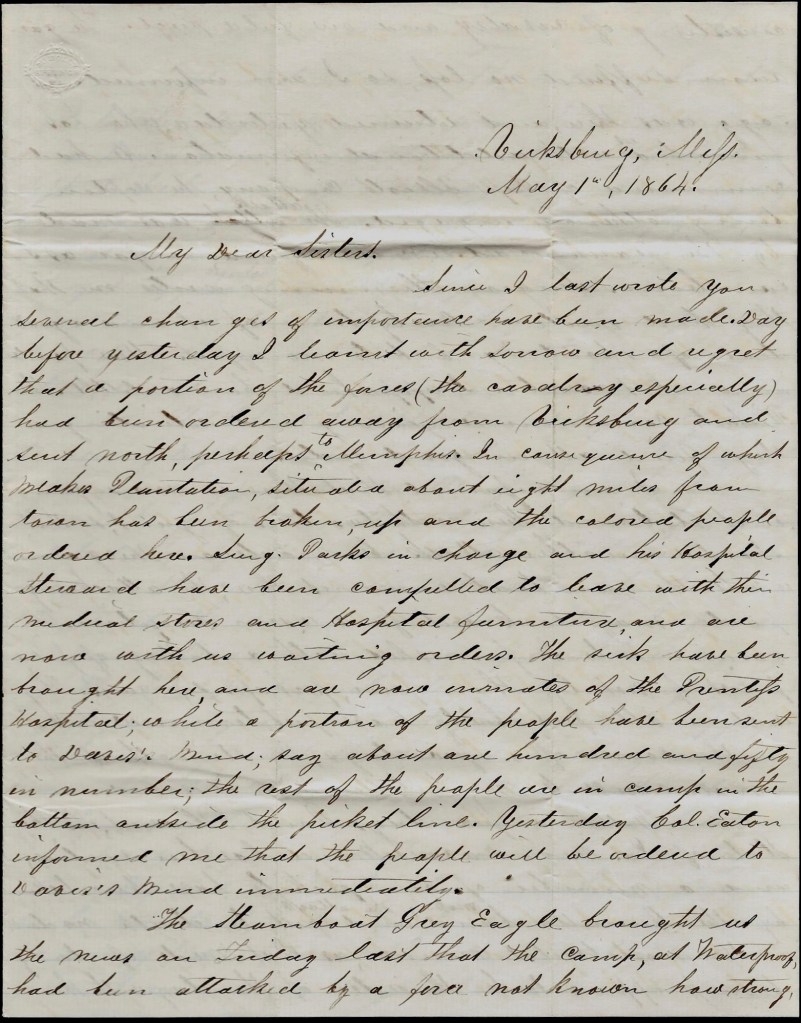 Vicksburg, Miss.
May 1st, 1864.
My Dear Sisters.
Since I last wrote you
several changes of importance have been made. Day
before yesterday I learnt with sorrow and regret
that a portion of the forces (the cavalry especially)
had been ordered away from Vicksburg and
sent north, perhaps to Memphis. In consequence of which
Blakes Plantation, situated about eight miles from
town has been broken, up and the colored people
ordered here. Surg. Parks in charge and his Hospital
Steward have been compelled to leave with their
medical stores and Hospital furniture, and are
now with us waiting orders. The sick have been
brought here, and are now inmates of the Prentiss
Hospital; while a portion of the people have been sent
to Davis'. Bend; say about one hundred and fifty
in number; the rest of the people are in camp in the
bottom outside the picket line. Yesterday Col. Eaton
informed me that the people will be ordered to
Davis's Bend immediately.
The Steamboat Grey Eagle brought us
the news on Friday last that the camp, at Waterproof,
had been attacked by a force not known how strong,